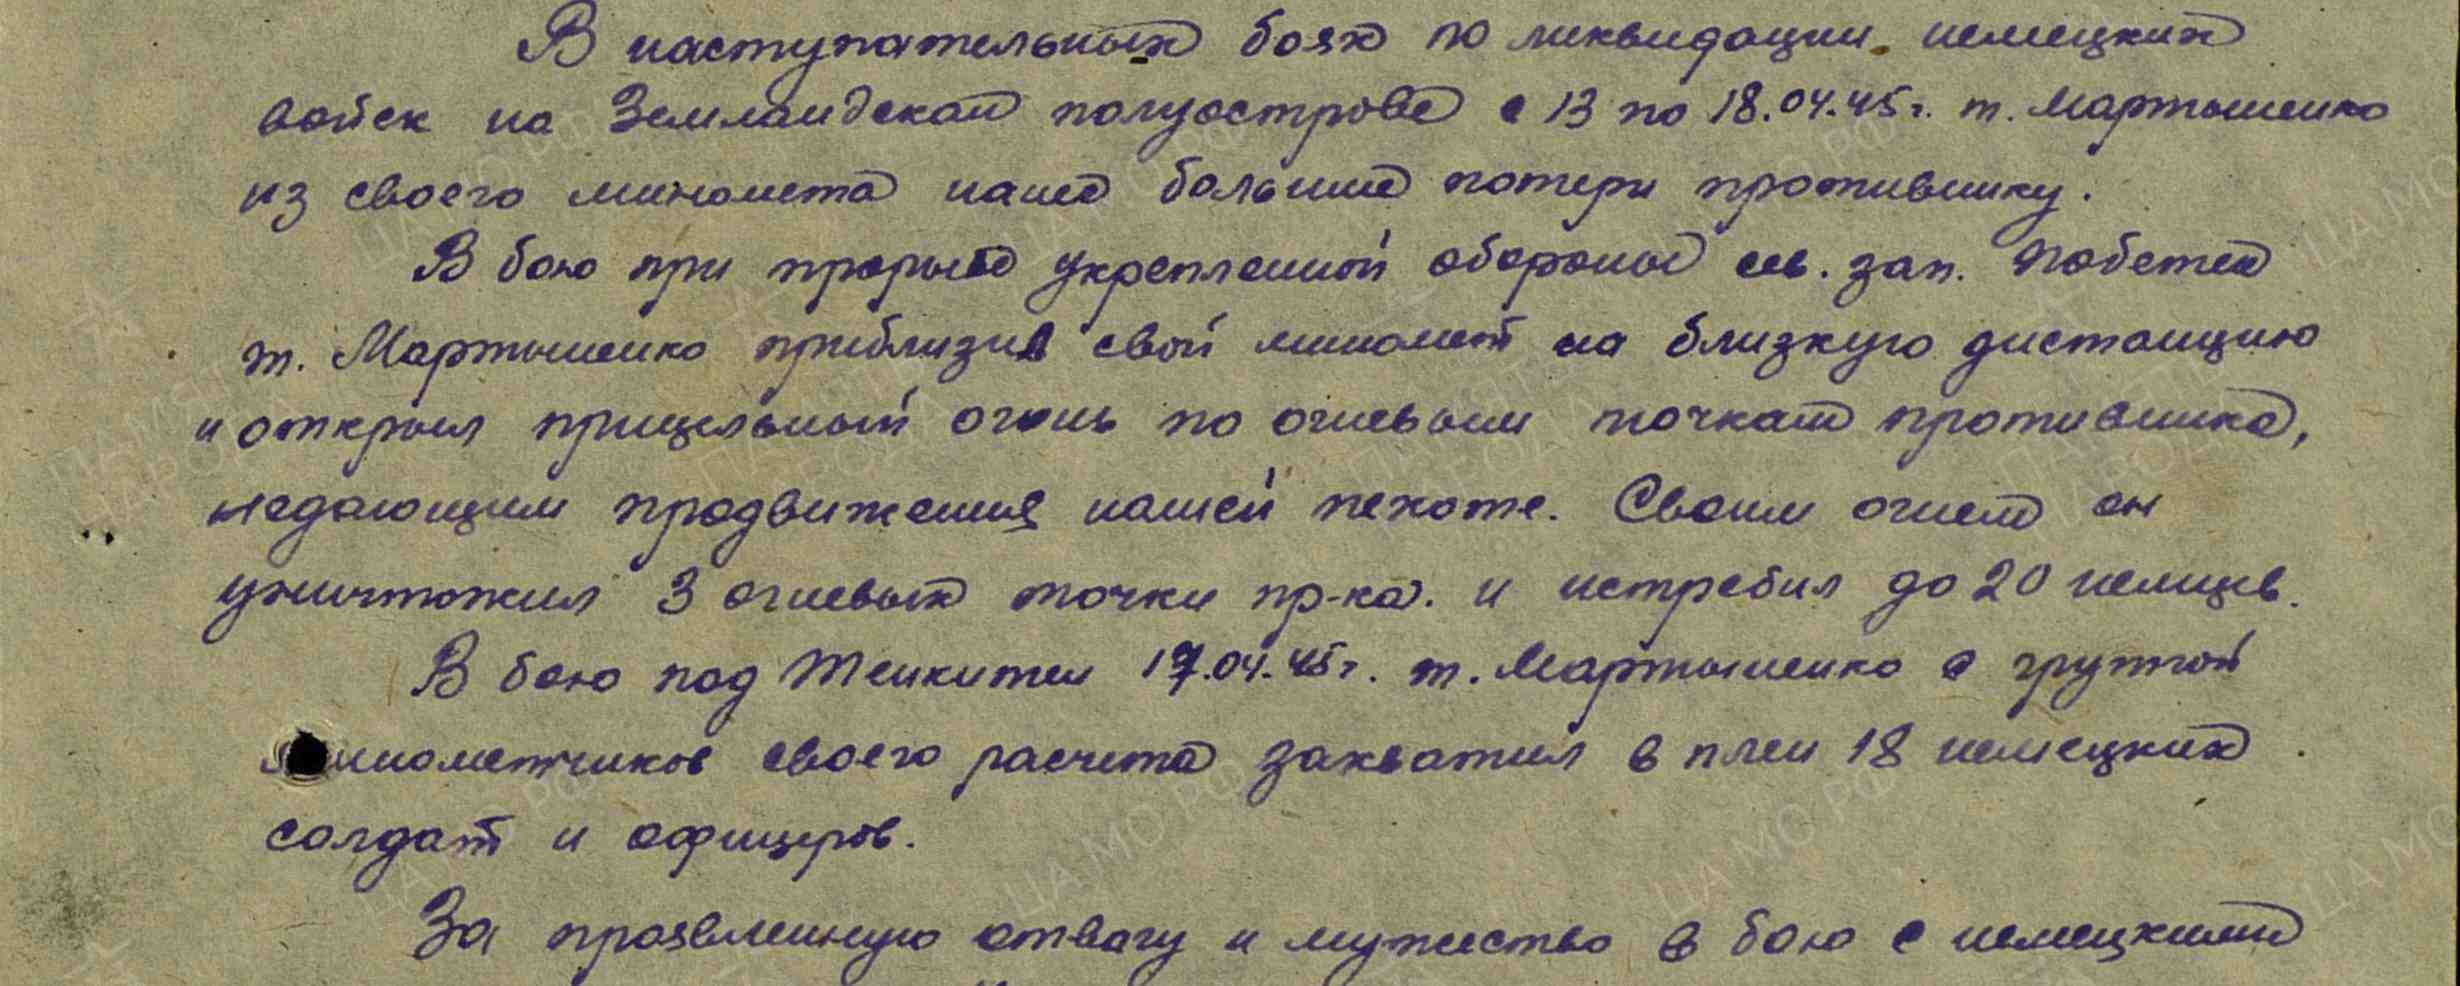 В наступательных боях по ликвидации немецких
войск на Земландском полуострове с 13 по 18.04.45г. т. Мартышенко
из своего миномета нанес большие потери противнику.
В бою при прорыве укрепленной обороны сев. зап. Побетен
т. Мартышенко приблизив свой миномет на близкую дистанцию
и открыл прицельный огонь по огневым точкам противника,
недающим продвижения нашей пехоте. Своим огнем он
уничтожил 3 огневых точки пр-ка. и истребил до 20 немцев.
В бою под 17.04.45г. т. Мартышенко с группой
минометчиков своего расчета захватил в плен 18 немецких
солдат и офицеров.
За проявленную отвагу и мужество в бою с немецкими